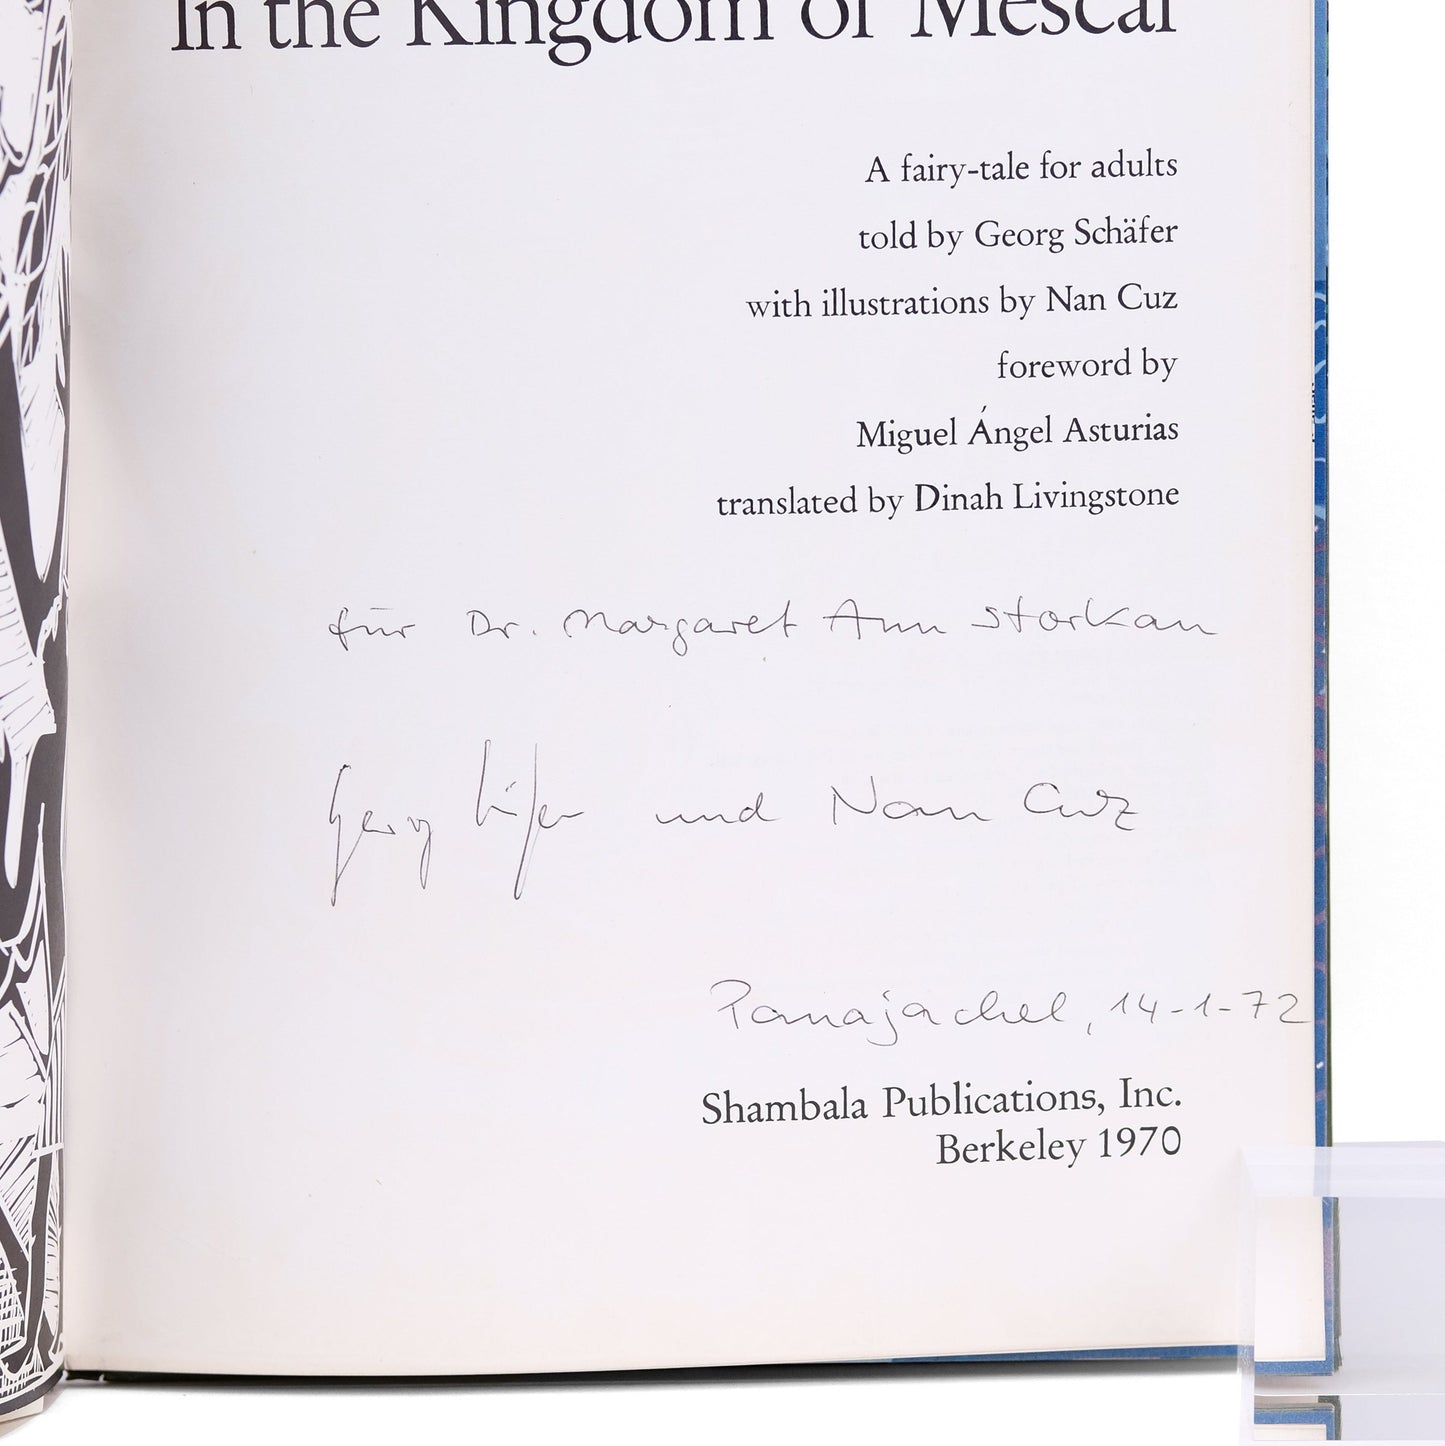 In the Kingdom of Mescal
A fairy-tale for adults
told by Georg Schäfer
with illustrations by Nan Cuz
foreword by
Miguel Ángel Asturias
translated by Dinah Livingstone
für Dr. Margaret Ann Storkan
Georg Schäfer und Nan Cuz
Panajachel, 14-1-72
Shambala Publications, Inc.
Berkeley 1970